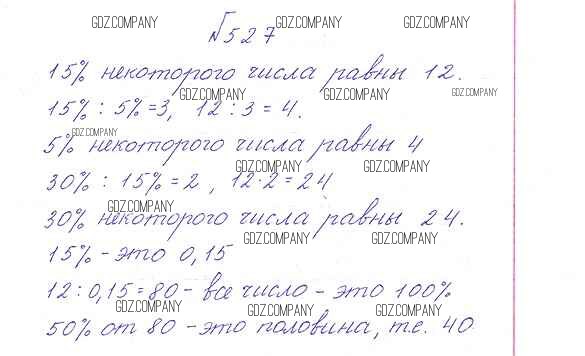 GDZ.COMPANY GDZ.COMPANY GDZ.COMPANY
№527
15% некоторого числа равны 12.
GDZ.COMPANY GDZ.COMPANY GDZ.COMPANY
15% : 5% = 3, 12 : 3 = 4.
GDZ.COMPANY
5% некоторого числа равны 4
GDZ.COMPANY GDZ.COMPANY
30% : 15% = 2, 12·2 = 24
GDZ.COMPANY
30% некоторого числа равны 24.
GDZ.COMPANY GDZ.COMPANY
15% - это 0,15
12 : 0,15 = 80 - все число - это 100%
GDZ.COMPANY GDZ.COMPANY GDZ.COMPANY
50% от 80 - это половина, т.е. 40